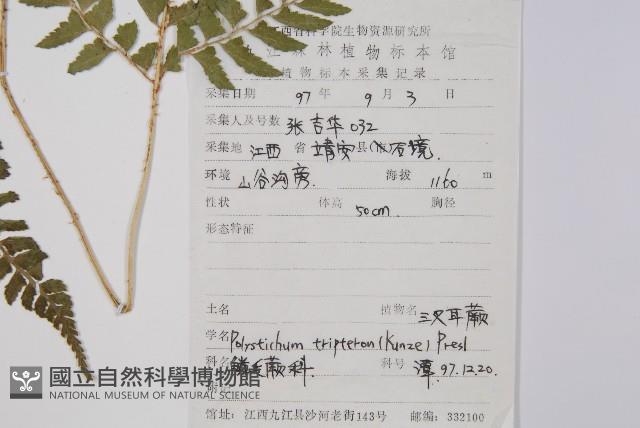 江西省科学院生物资源研究所
九江森林植物标本馆
植物标本采集记录
采集日期 97 年 9 月 3 日
采集人及号数 张吉华 032
采集地 江西 省 靖安 县 石境.
环境 山谷沟旁. 海拔 1160 m
性状 体高 50cm. 胸径
形态特征
土名 植物名 三叉耳蕨
学名 Polystichum tripteron (Kunze) Presl
科名 鳞毛蕨科. 科号 潭. 97.12.20.
附记
馆址: 江西九江县沙河老街143号 邮编: 332100
國立自然科學博物館
NATIONAL MUSEUM OF NATURAL SCIENCE